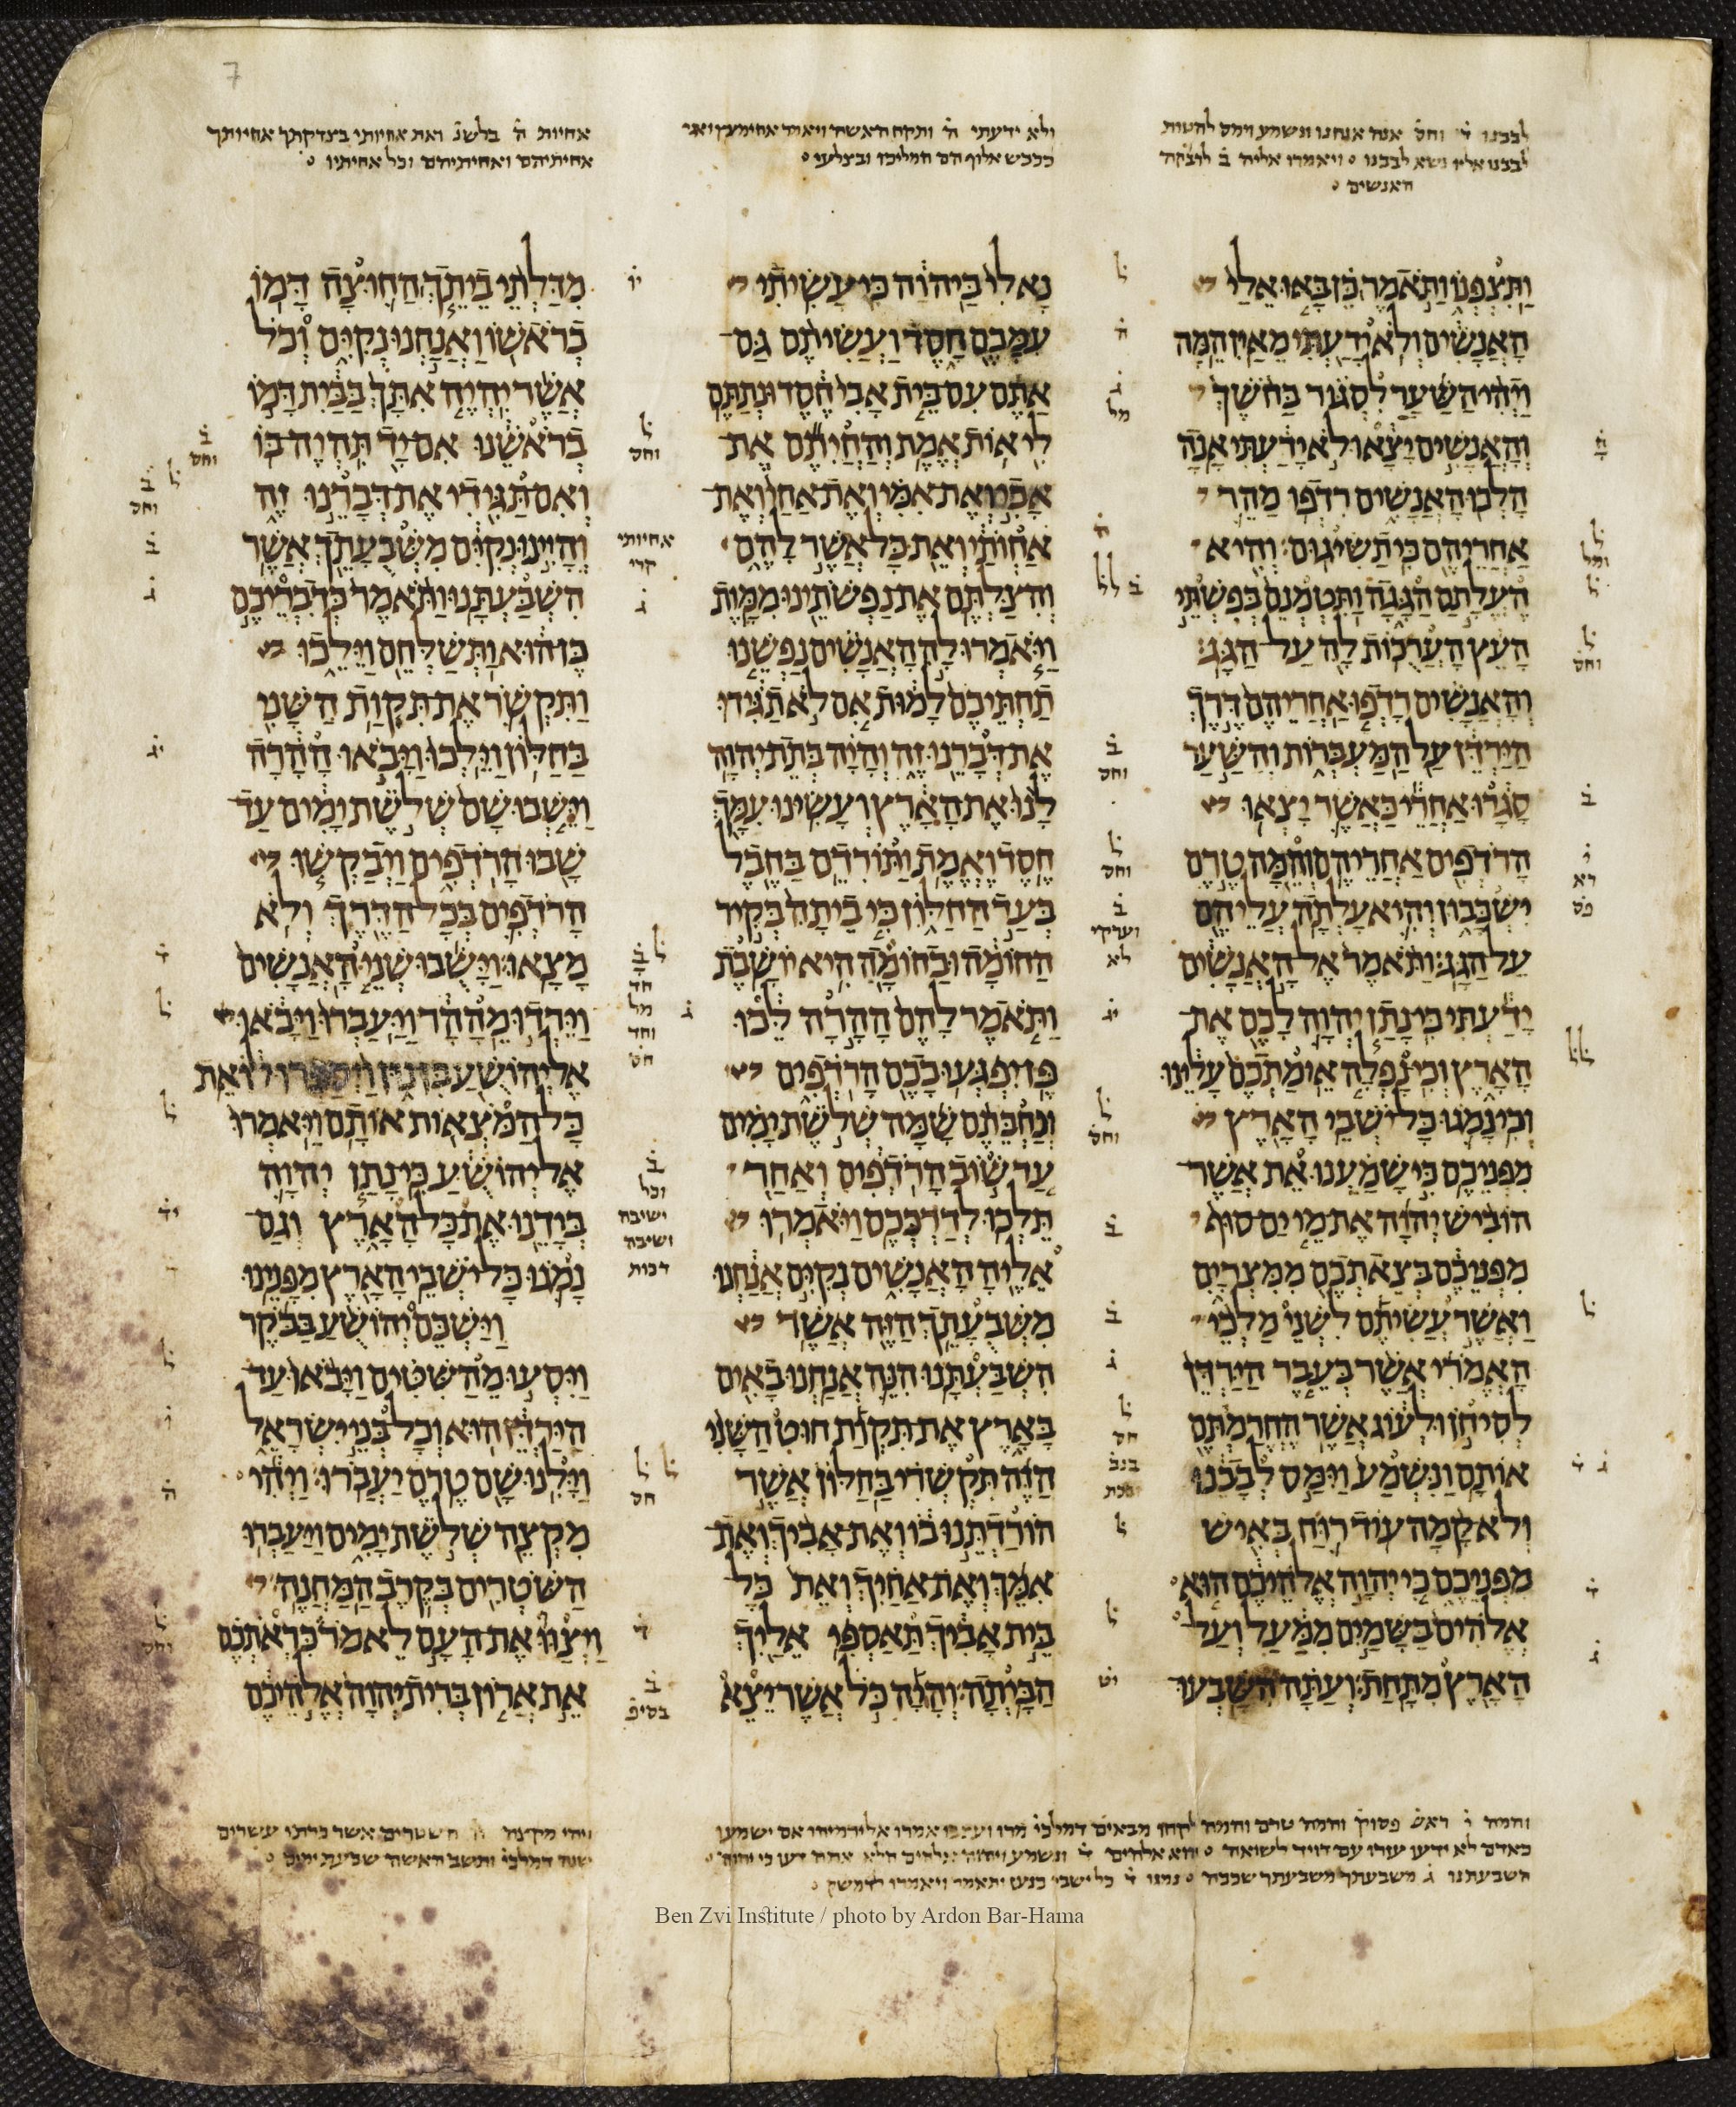 לבבנו ד וחס אנה אנחנו ונשמע וימס להטות
לבבנו אליו נשא לבבנו ויאמרו אליה ב לרבקה
האנשים
ולא ידעתי ה ותקח האשה ויאמר אחימעץ ואני
ככבש אלוף הם המליכו ובצלעי
אחיות ה בלשנ ואת אחיותי בצדקתך אחיותך
אחיתיהם ואחיתיהם וכל אחיתיו
ותצפנו ותאמר כן באו אלי
האנשים ולא ידעתי מאין המה
ויהי השער לסגור בחשך
והאנשים יצאו לא ידעתי אנה
הלכו האנשים רדפו מהר
אחריהם כי תשיגום והיא
העלתם הגגה ותטמנם בפשתי
העץ הערכות לה על הגג
והאנשים רדפו אחריהם דרך
הירדן על המעברות והשער
סגרו אחרי כאשר יצאו
הרדפים אחריהם והמה טרם
ישכבון והיא עלתה עליהם
על הגג ותאמר אל האנשים
ידעתי כי נתן יהוה לכם את
הארץ וכי נפלה אימתכם עלינו
וכי נמגו כל ישבי הארץ
מפניכם כי שמענו את אשר
הוביש יהוה את מי ים סוף
מפניכם בצאתכם ממצרים
ואשר עשיתם לשני מלכי
האמרי אשר בעבר הירדן
לסיחן ולעוג אשר החרמתם
אותם ונשמע וימס לבבנו
ולא קמה עוד רוח באיש
מפניכם כי יהוה אלהיכם הוא
אלהים בשמים ממעל ועל
הארץ מתחת ועתה השבעו
נא לי ביהוה כי עשיתי
עמכם חסד ועשיתם גם
אתם עם בית אבי חסד ונתתם
לי אות אמת והחיתם את
אבי ואת אמי ואת אחי ואת
אחותי ואת כל אשר להם
והצלתם את נפשתינו ממות
ויאמרו לה האנשים נפשנו
תחתיכם למות אם לא תגידו
את דברנו זה והיה בתת יהוה
לנו את הארץ ועשינו עמך
חסד ואמת ותורדם בחבל
בעד החלון כי ביתה בקיר
החומה ובחומה היא יושבת
ותאמר להם ההרה לכו
פן יפגעו בכם הרדפים
ונחבתם שמה שלשת ימים
עד שוב הרדפים ואחר
תלכו לדרככם ויאמרו
אליה האנשים נקים אנחנו
משבעתך הזה אשר
השבעתנו הנה אנחנו באים
בארץ את תקות חוט השני
הזה תקשרי בחלון אשר
הורדתנו בו ואת אביך ואת
אמך ואת אחיך ואת כל
בית אביך תאספי אליך
הביתה והיה כל אשר יצא
מדלתי ביתך החוצה דמו
בראשו ואנחנו נקים וכל
אשר יהיה אתך בבית דמו
בראשנו אם יד תהיה בו
ואם תגידי את דברנו זה
והיינו נקים משבעתך אשר
השבעתנו ותאמר כדבריכם
כן הוא ותשלחם וילכו
ותקשר את תקות השני
בחלון וילכו ויבאו ההרה
וישבו שם שלשת ימים עד
שבו הרדפים ויבקשו
הרדפים בכל הדרך ולא
מצאו וישבו שני האנשים
וירדו מההר ויעברו ויבאו
אל יהושע בן נון ויספרו לו את
כל המצאות אותם ויאמרו
אל יהושע כי נתן יהוה
בידנו את כל הארץ וגם
נמגו כל ישבי הארץ מפנינו
וישכם יהושע בבקר
ויסעו מהשטים ויבאו עד
הירדן הוא וכל בני ישראל
וילנו שם טרם יעברו ויהי
מקצה שלשת ימים ויעברו
השטרים בקרב המחנה
ויצוו את העם לאמר כראתכם
את ארון ברית יהוה אלהיכם
אחיותי
קרי
והמה ראש פסוק והמה טרם והמה לקחו מבאים דמלכי
השבעתנו ג משבעתך משבעתך שככה נמגו ד כל ישבי כנען
ויהי מקצה השטרים אשר ברתי עשרים
שנה דמלכי ותשב האשה שבעת ימים
Ben Zvi Institute / photo by Ardon Bar-Hama
7